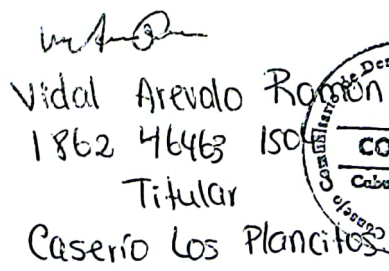 Vidal Arevalo Ramón
1862 46463 1504
Titular
Caserío Los Plancitos